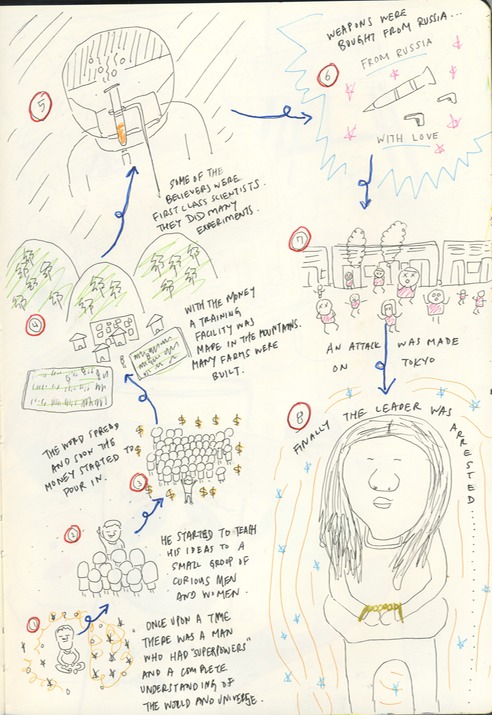 1
ONCE UPON A TIME
THERE WAS A MAN
WHO HAD "SUPERPOWERS"
AND A COMPLETE
UNDERSTANDING OF
THE WORLD AND UNIVERSE.
2
HE STARTED TO TEACH
HIS IDEAS TO A
SMALL GROUP OF
CURIOUS MEN
AND WOMEN.
3
THE WORD SPREAD
AND SOON THE
MONEY STARTED TO
POUR IN.
4
WITH THE MONEY
A TRAINING
FACILITY WAS
MADE IN THE MOUNTAINS.
MANY FARMS WERE
BUILT.
5
SOME OF THE
BELIEVERS WERE
FIRST CLASS SCIENTISTS.
THEY DID MANY
EXPERIMENTS.
6
WEAPONS WERE
BOUGHT FROM RUSSIA...
FROM RUSSIA
WITH LOVE
7
AN ATTACK WAS MADE
ON TOKYO
8
FINALLY THE LEADER WAS ARRESTED..........